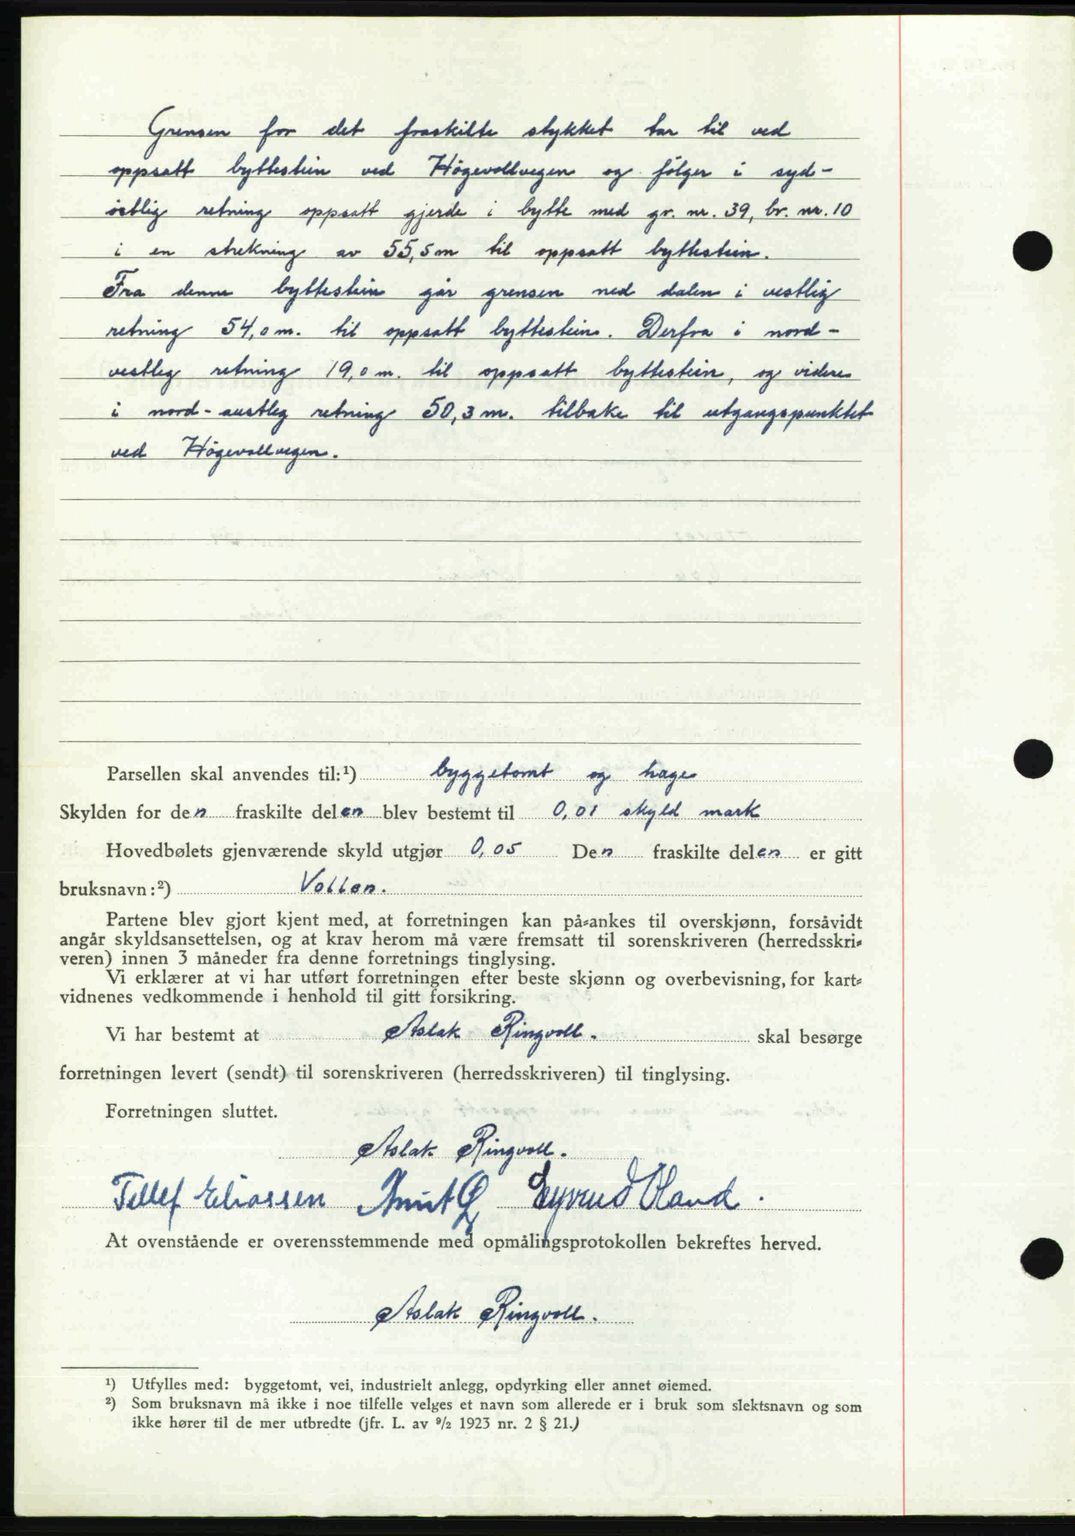 Grensen for det fraskilte stykket tar til ved
oppsatt byttestein ved Högevollvegen og følger i syd-
östlig retning oppsatt gjerde i bytte med gr. nr. 39, br. nr. 10
i en strekning av 55,5 m til oppsatt byttestein.
Fra denne byttestein går grensen ned dalen i vestlig
retning 54,0 m. til oppsatt byttestein. Derfra i nord-
vestleg retning 19,0 m. til oppsatt byttestein, og videre
i nord-austleg retning 50,3 m. tilbake til utgangspunktet
ved Högevollvegen.
Parsellen skal anvendes til:¹) byggetomt og hage
Skylden for den fraskilte delen blev bestemt til 0,01 skyld mark
Hovedbølets gjenværende skyld utgjør 0,05 Den fraskilte delen er gitt
bruksnavn:²) Vollen.
Partene blev gjort kjent med, at forretningen kan på-ankes til overskjønn, forsåvidt
angår skyldsansettelsen, og at krav herom må være fremsatt til sorenskriveren (herredsskri-
veren) innen 3 måneder fra denne forretnings tinglysing.
Vi erklærer at vi har utført forretningen efter beste skjønn og overbevisning, for kart-
vidnenes vedkommende i henhold til gitt forsikring.
Vi har bestemt at Aslak Ringvoll. skal besørge
forretningen levert (sendt) til sorenskriveren (herredsskriveren) til tinglysing.
Forretningen sluttet.
Aslak Ringvoll.
Tellef Eliassen Knut Eyvind Oland.
At ovenstående er overensstemmende med opmålingsprotokollen bekreftes herved.
Aslak Ringvoll.
¹) Utfylles med: byggetomt, vei, industrielt anlegg, opdyrking eller annet øiemed.
²) Som bruksnavn må ikke i noe tilfelle velges et navn som allerede er i bruk som slektsnavn og som
ikke hører til de mer utbredte (jfr. L. av 9/2 1923 nr. 2 § 21.)